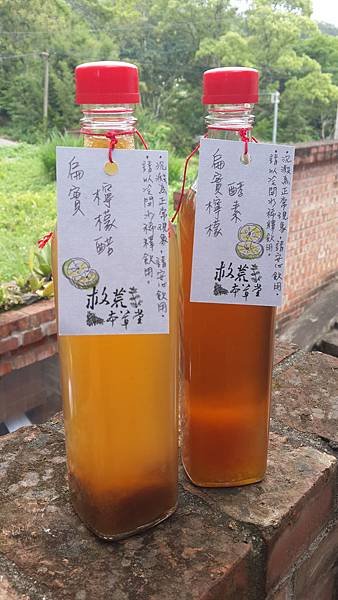 沉澱為正常現象，請安心飲用。
請以冷開水稀釋飲用。
扁實
檸檬醋
救荒
本草堂
沉澱為正常現象，請安心飲用。
請以冷開水稀釋飲用。
酵素
扁實檸檬
救荒
本草堂